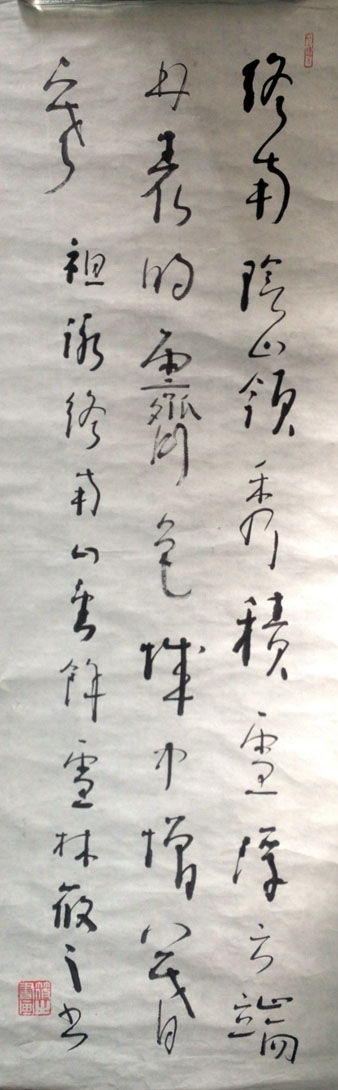 終南陰嶺秀積雪浮云端
林表明霽色城中增暮
寒 祖詠終南山望餘雪林筱之書